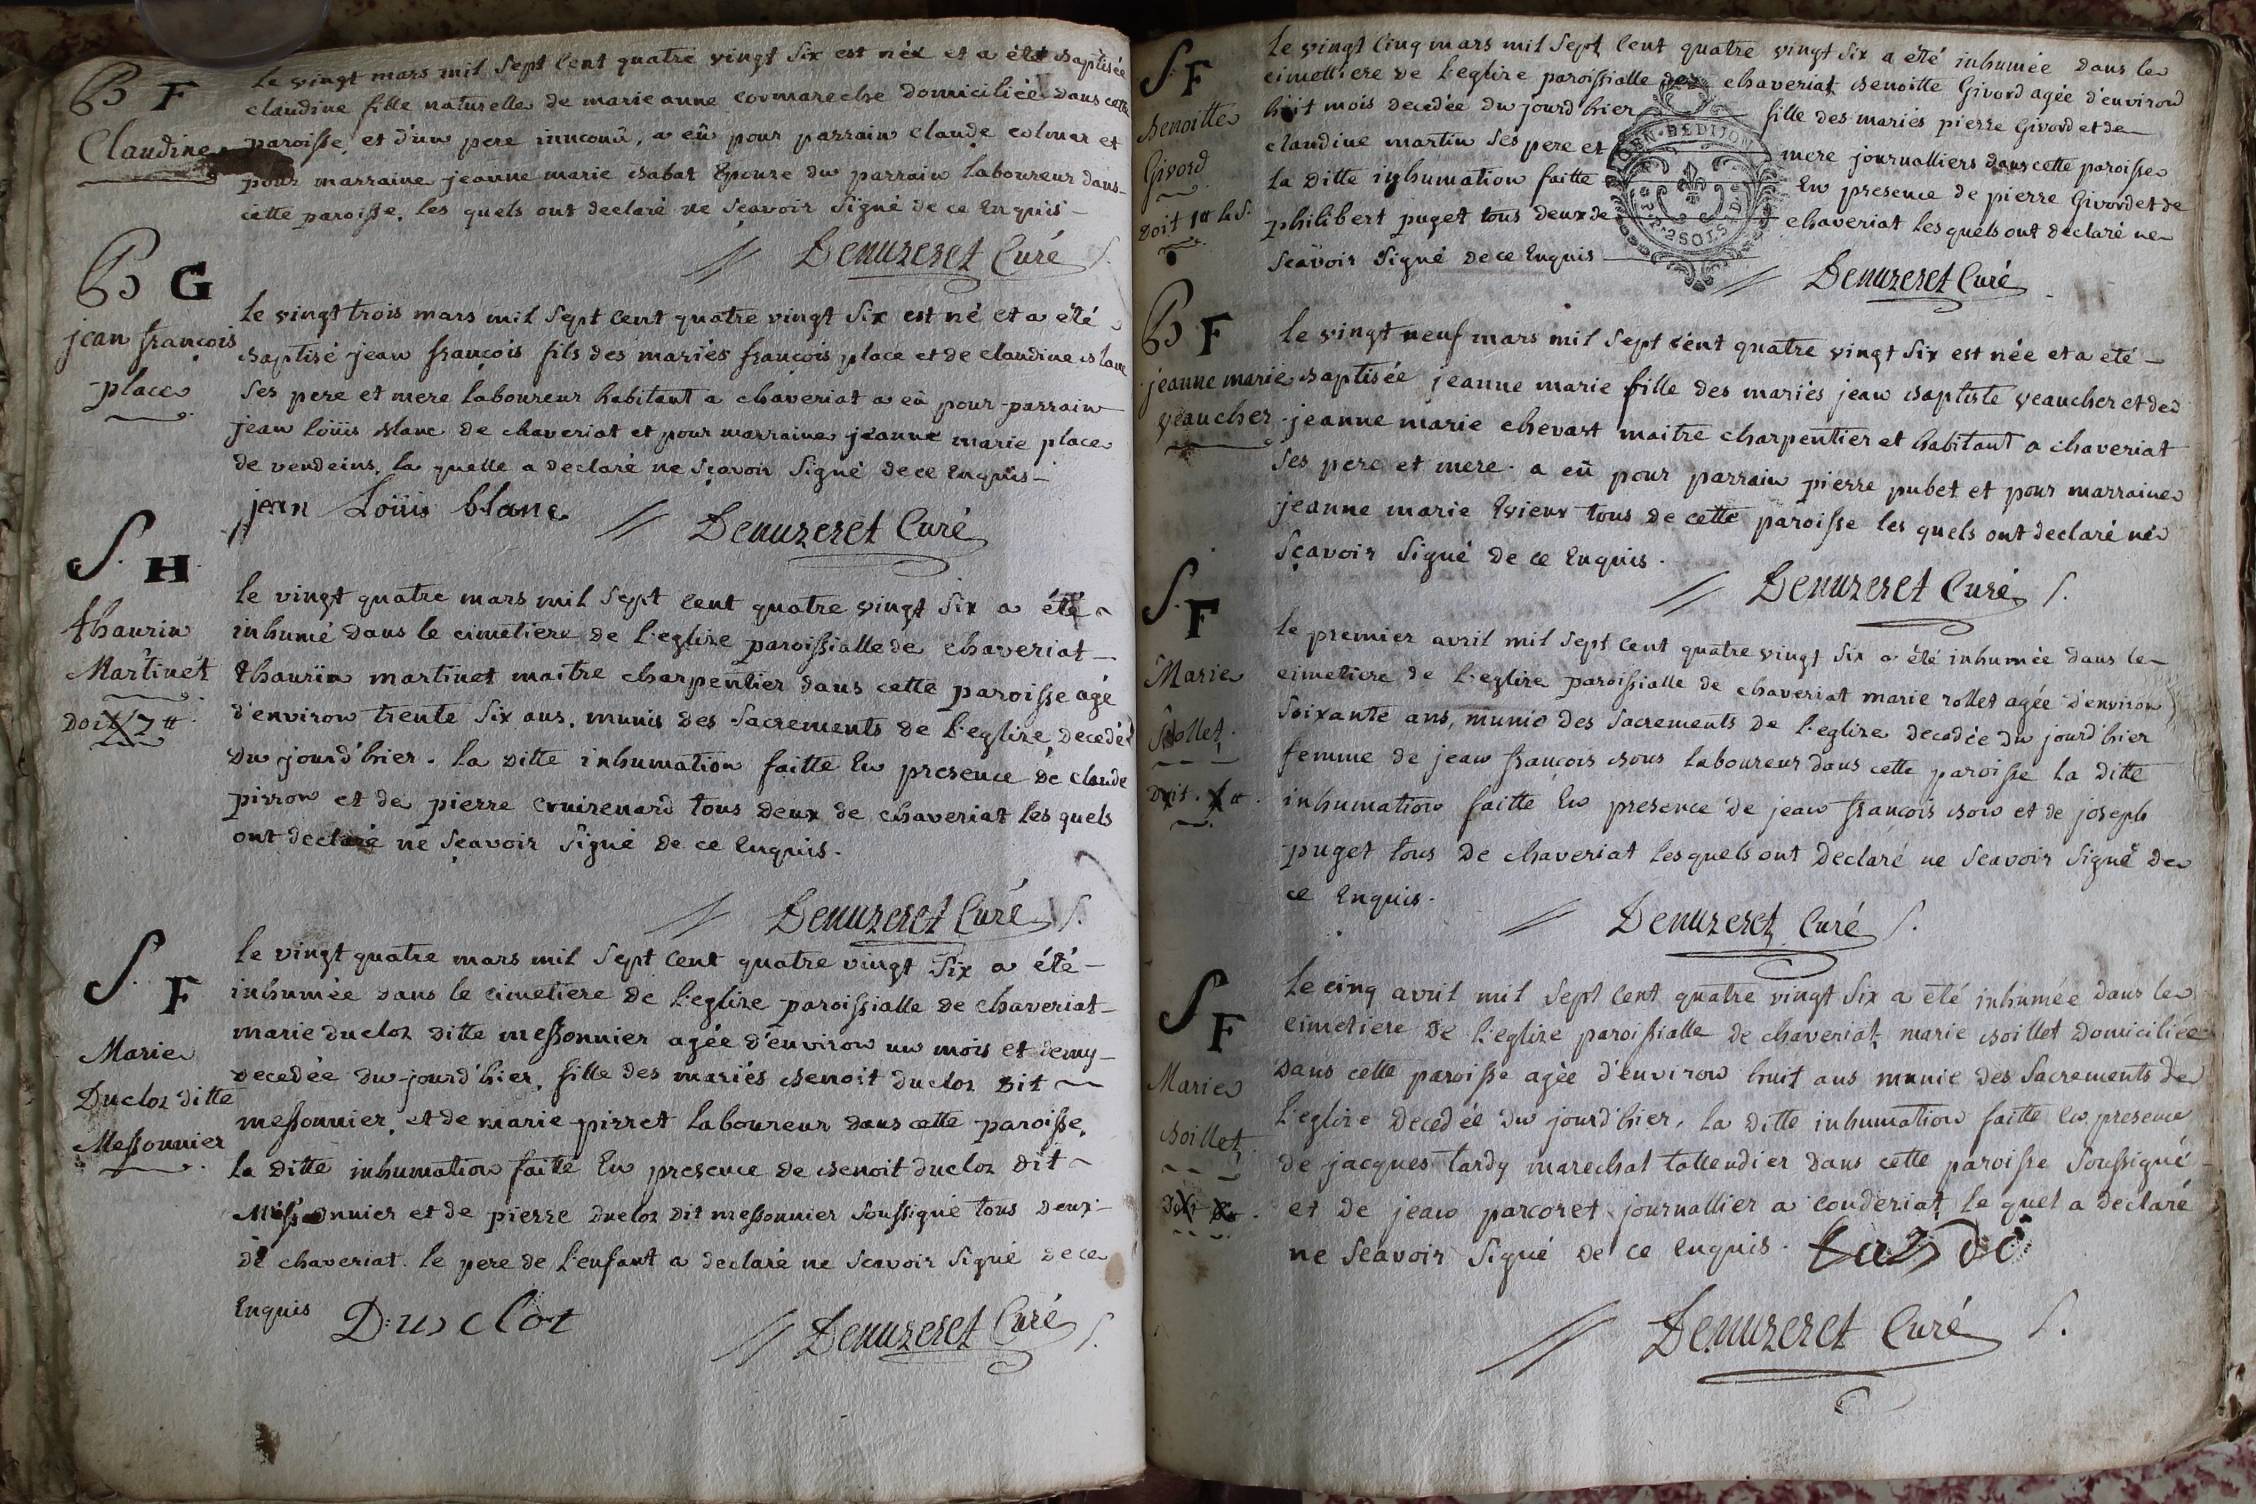 B F
Claudine
le vingt mars mil Sept Cent quatre vingt Six est née et a été baptisée
claudine fille naturelle de marie anne cormareche domiciliée dans cette
paroisse, et d'un pere innconû, a eû pour parrain claude colomar et
pour marraine jeanne marie babat Epouse du parrain laboureur dans
cette paroisse, les quels ont declaré ne Sçavoir Signé de ce Enquis
Denuzeret Curé
B G
jean françois
place
le vingt trois mars mil Sept Cent quatre vingt Six est né et a été
baptisé jean françois fils des mariés françois place et de claudine blanc
Ses pere et mere laboureur habitant a chaveriat a eû pour parrain
jean loüis blanc de chaveriat et pour marraine jeanne marie place
de vendeins, la quelle a declaré ne Sçavoir Signé de ce Enquis
jean Loüis blanc
Denuzeret Curé
S. H
thaurin
Martinet
Doit 7 tt
le vingt quatre mars mil Sept Cent quatre vingt Six a été
inhumé dans le cimetiere de l'eglize paroissialle de chaveriat
thaurin martinet maitre charpentier dans cette paroisse agé
d'environ trente Six ans, munis des Sacrements de l'eglize, decedé
du jourd'hier. la ditte inhumation faitte En presence de claude
pirron et de pierre cruizenard tous deux de chaveriat les quels
ont declaré ne Sçavoir Signé de ce Enquis.
Denuzeret Curé
S. F
Marie
Ducloz ditte
Messonnier
le vingt quatre mars mil Sept Cent quatre vingt Six a été
inhumée dans le cimetiere de l'eglize paroissialle de chaveriat
marie ducloz ditte messonnier agée d'environ un mois et demy
decedée du jourd'hier, fille des mariés benoit ducloz dit
messonnier, et de marie pirret laboureur dans cette paroisse,
la ditte inhumation faitte En presence de benoit ducloz dit
Messonnier et de pierre ducloz dit messonnier Soussigné tous deux
de chaveriat. le pere de l'enfant a declaré ne Scavoir Signé de ce
Enquis
Duclot
Denuzeret Curé
S. F
benoitte
Givord
Doit 1tt
le vingt Cinq mars mil Sept Cent quatre vingt Six a été inhumée dans le
cimettiere de l'eglize paroissialle de chaveriat benoitte Givord agée d'environ
huit mois decedée du jourd'hier fille des mariés pierre Givord et de
claudine martin Ses pere et mere journalliers dans cette paroisse
la ditte inhumation faitte En presence de pierre Givord et de
philibert puget tous deux de chaveriat les quels ont declaré ne
Scavoir Signé de ce Enquis
Denuzeret Curé
B F
jeanne marie
veaucher
le vingt neuf mars mil Sept cent quatre vingt Six est née et a eté
baptisée jeanne marie fille des mariés jean baptiste veaucher et de
jeanne marie chevart maitre charpentier et habitant a chaveriat
Ses pere et mere. a eû pour parrain pierre pubet et pour marraine
jeanne marie Evieux tous de cette paroisse les quels ont declaré ne
Sçavoir Signé de ce Enquis.
Denuzeret Curé
S. F
Marie
Rollet
le premier avril mil Sept Cent quatre vingt Six a été inhumée dans le
cimetiere de l'eglize paroissialle de chaveriat marie rollet agée d'environ
Soixante ans, munie des Sacrements de l'eglize decedée du jourd'hier
femme de jean françois bous laboureur dans cette paroisse la ditte
inhumation faitte En presence de jean françois bow et de joseph
puget tous de chaveriat les quels ont declaré ne Scavoir Signé de
ce Enquis.
Denuzeret Curé
S F
Marie
boillet
le cinq avril mil Sept Cent quatre vingt Six a eté inhumée dans le
cimetiere de l'eglize paroissialle de chaveriat marie boillet domiciliée
dans cette paroisse agée d'environ huit ans munie des Sacrements de
l'eglize decedée du jourd'hier, la ditte inhumation faitte En presence
de jacques tardy marechal tallendier dans cette paroisse Soussigné
et de jean parcoret journallier a conderiat, le quel a declaré
ne Scavoir Signé de ce Enquis.
Denuzeret Curé